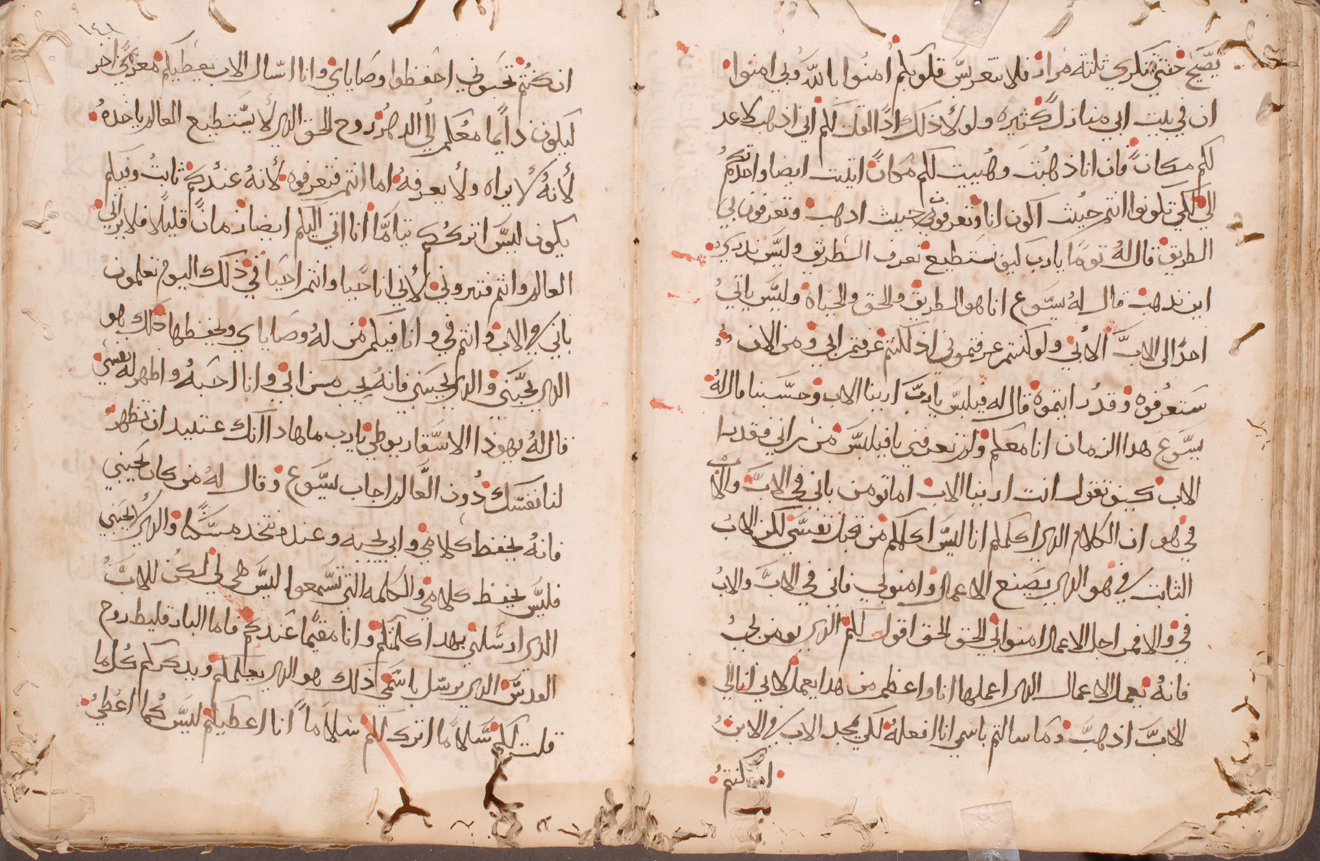 يصيح حتى تكرى ثلثه مرار فلا تتعرس قلوبكم امنوا بالله وبى امنوا
ان فى بيت ابى منازل كثيره ولولا ذلك اذا لقلت لكم انى اذهب لاعد
لكم مكاناً فان انا ذهبت وهييت لكم مكاناً اتيت ايضا واخذتكم
الى لكى تكونوا انتم حيث اكون انا وتعرفون حيث اذهب وتعرفون الى
الطريق قال له توما يارب كيف نستطيع نعرف الطريق وليس ندرى
اين تذهب قال له يسوع انا هو الطريق والحق والحياه وليس ياتى
احد الى الاب الا بى ولو كنتم عرفتمونى اذ لكنتم عرفتم ابى ومن الان
ستعرفوه وقد رايتموه قال له فيلبس يارب ارينا الاب وحسبنا قال له
يسوع هدا الزمان انا معكم ولم تعرفنى يا فيلبس من رانى فقد را
الاب كيف تقول انت ارينا الاب اما تومن بانى فى الاب والاب
فى هو ان الكلام الدى اكلمكم انا ليس اكلمكم من قبل نفسى لكن الاب
الثابت فى هو الدى يصنع الاعمال امنو بى بانى فى الاب والاب
فى والا فمن اجل الاعمال امنوا بى الحق الحق اقول لكم الدى يومن بى
فانه يعمل الاعمال الدى اعملها انا واعظم من هدا يعمل لانى انا الى
الاب اذهب وما سالتم باسمى انا افعله لكى يمجد الاب فى الابن
ان كنتم
١٤٨
ان كنتم تحبونى احفظوا وصاياى وانا اسال الاب يعطيكم معزى اخر
ليكون دايما معكم الى الدهر روح الحق الدى لا يستطيع العالم ياخده
لانه لا يراه ولا يعرفه اما انتم فتعرفوه لانه عندكم ثابت وفيكم
يكون ليس اترككم يتاما انا اتى اليكم ايضا زماناً قليلا فلا يرانى
العالم وانتم فترونى لانى انا حيا وانتم احيا فى ذلك اليوم تعلمون
بانى فى الاب وانتم فى وانا فيكم من له وصاياى ويحفظها ذلك هو
الدى يحبنى والدى يحبنى فانه يحب من ابى وانا احبه واظهر له نفسى
قال له يهودا الاسقاريوطى يارب ما هادا انك عتيد ان تظهر
لنا نفسك دون العالم اجاب يسوع وقال له من كان يحبنى
فانه يحفظ كلامى وابى يحبه وعنده نتخد مسكناً والدى لا يحبنى
فليس يحفظ كلامى والكلمه التى تسمعوا ليس هى لى لكن للاب
الدى ارسلنى بهدا كلمتكم وانا مقيماً عندكم فاما البارقليط روح
القدس الدى يرسل باسمى ادلك هو الدى يعلمكم ويدكركم كلما
قلت لكم سلاماً اترك لكم سلاماً انا اعطيكم ليس كما اعطى